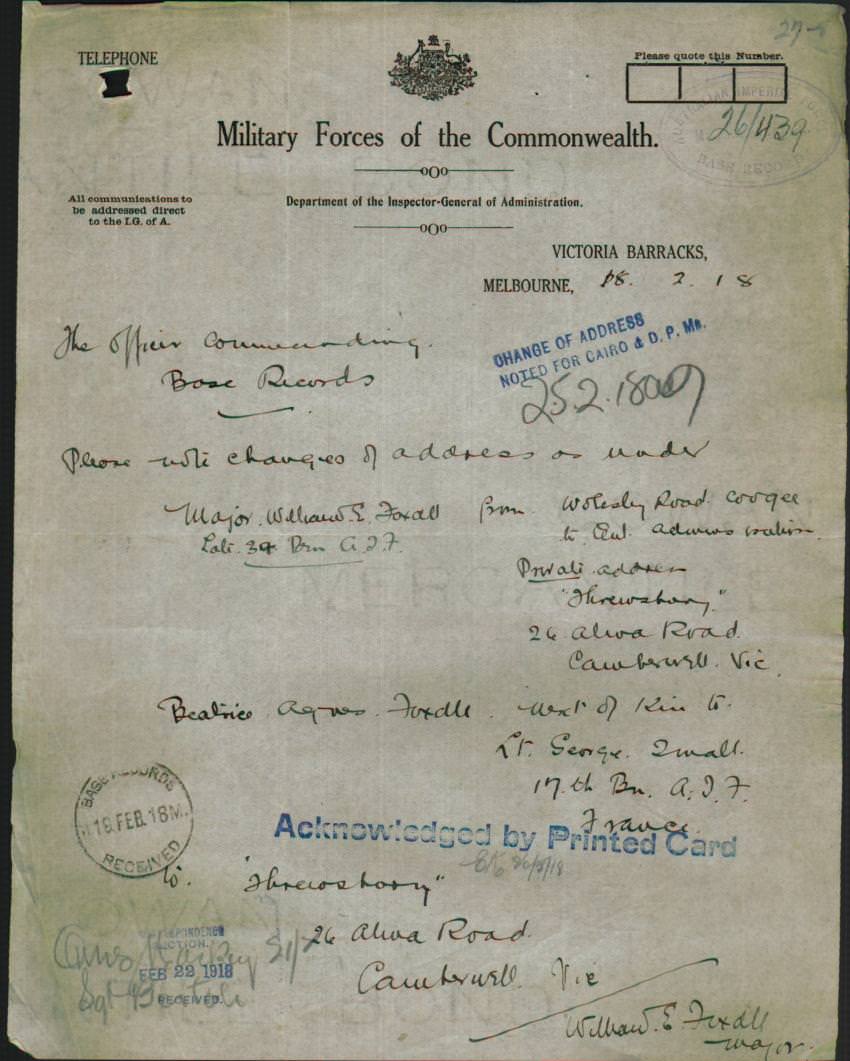 TELEPHONE
Please quote this Number.
26/439
Military Forces of the Commonwealth.
All communications to
be addressed direct
to the I.G. of A.
Department of the Inspector-General of Administration.
VICTORIA BARRACKS,
MELBOURNE, 18. 2. 18
CHANGE OF ADDRESS
NOTED FOR CAIRO & D. P. Mn.
25.2.18
The Officer Commanding.
Base Records
Please note changes of address as under
Major. William E. Foxall from Wolesly Road. Coogee
Late 34 Brn A.I.F. to Cent. Administration.
Private address
"Shrewsbury"
26 Alma Road.
Camberwell. Vic
Beatrice Agnes Foxall. Next of Kin to.
Lt. George Small.
17.th Bn. A.I.F.
France.
BASE RECORDS
18. FEB. 18
RECEIVED
Acknowledged by Printed Card
26/2/18
to. "Shrewsbury"
26 Alma Road.
Camberwell. Vic
FEB 22 1918
RECEIVED.
William. E Foxall
Major.